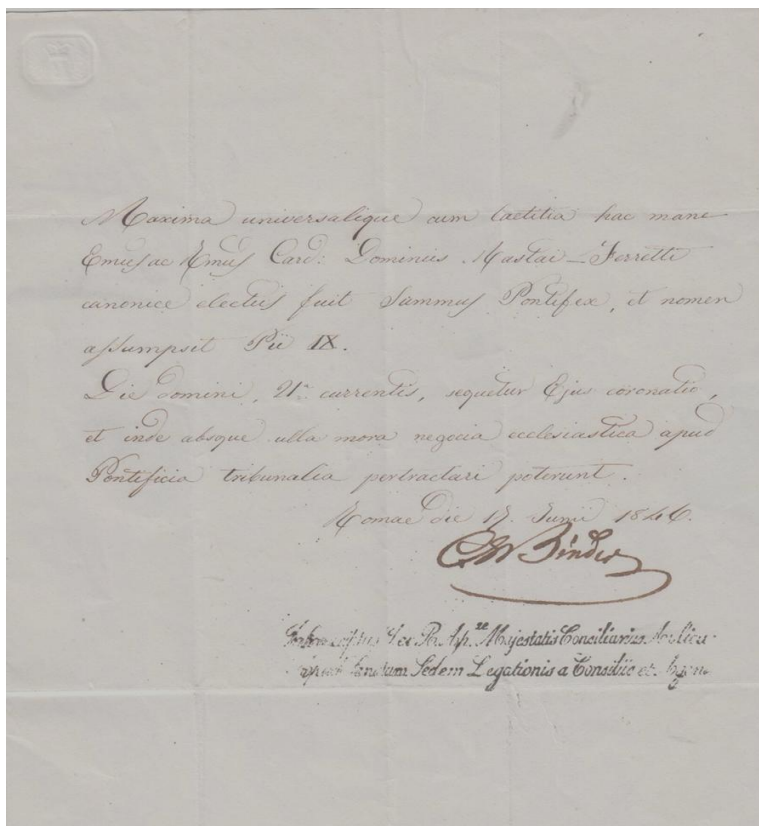 Maxima universalique cum laetitia hac mane
Emus ac Rmus Card: Dominus Mastai-Ferretti
canonice electus fuit Summus Pontifex, et nomen
assumpsit Pii IX.
Die domini, 21a currentis, sequetur Ejus coronatio,
et inde absque ulla mora negocia ecclesiastica apud
Pontificia tribunalia pertractari poterunt.
Romae die 17. Junii 1846.
Binder
Majestatis Consiliarius Aulicus
apud Sanctam Sedem Legationis a Consiliis et